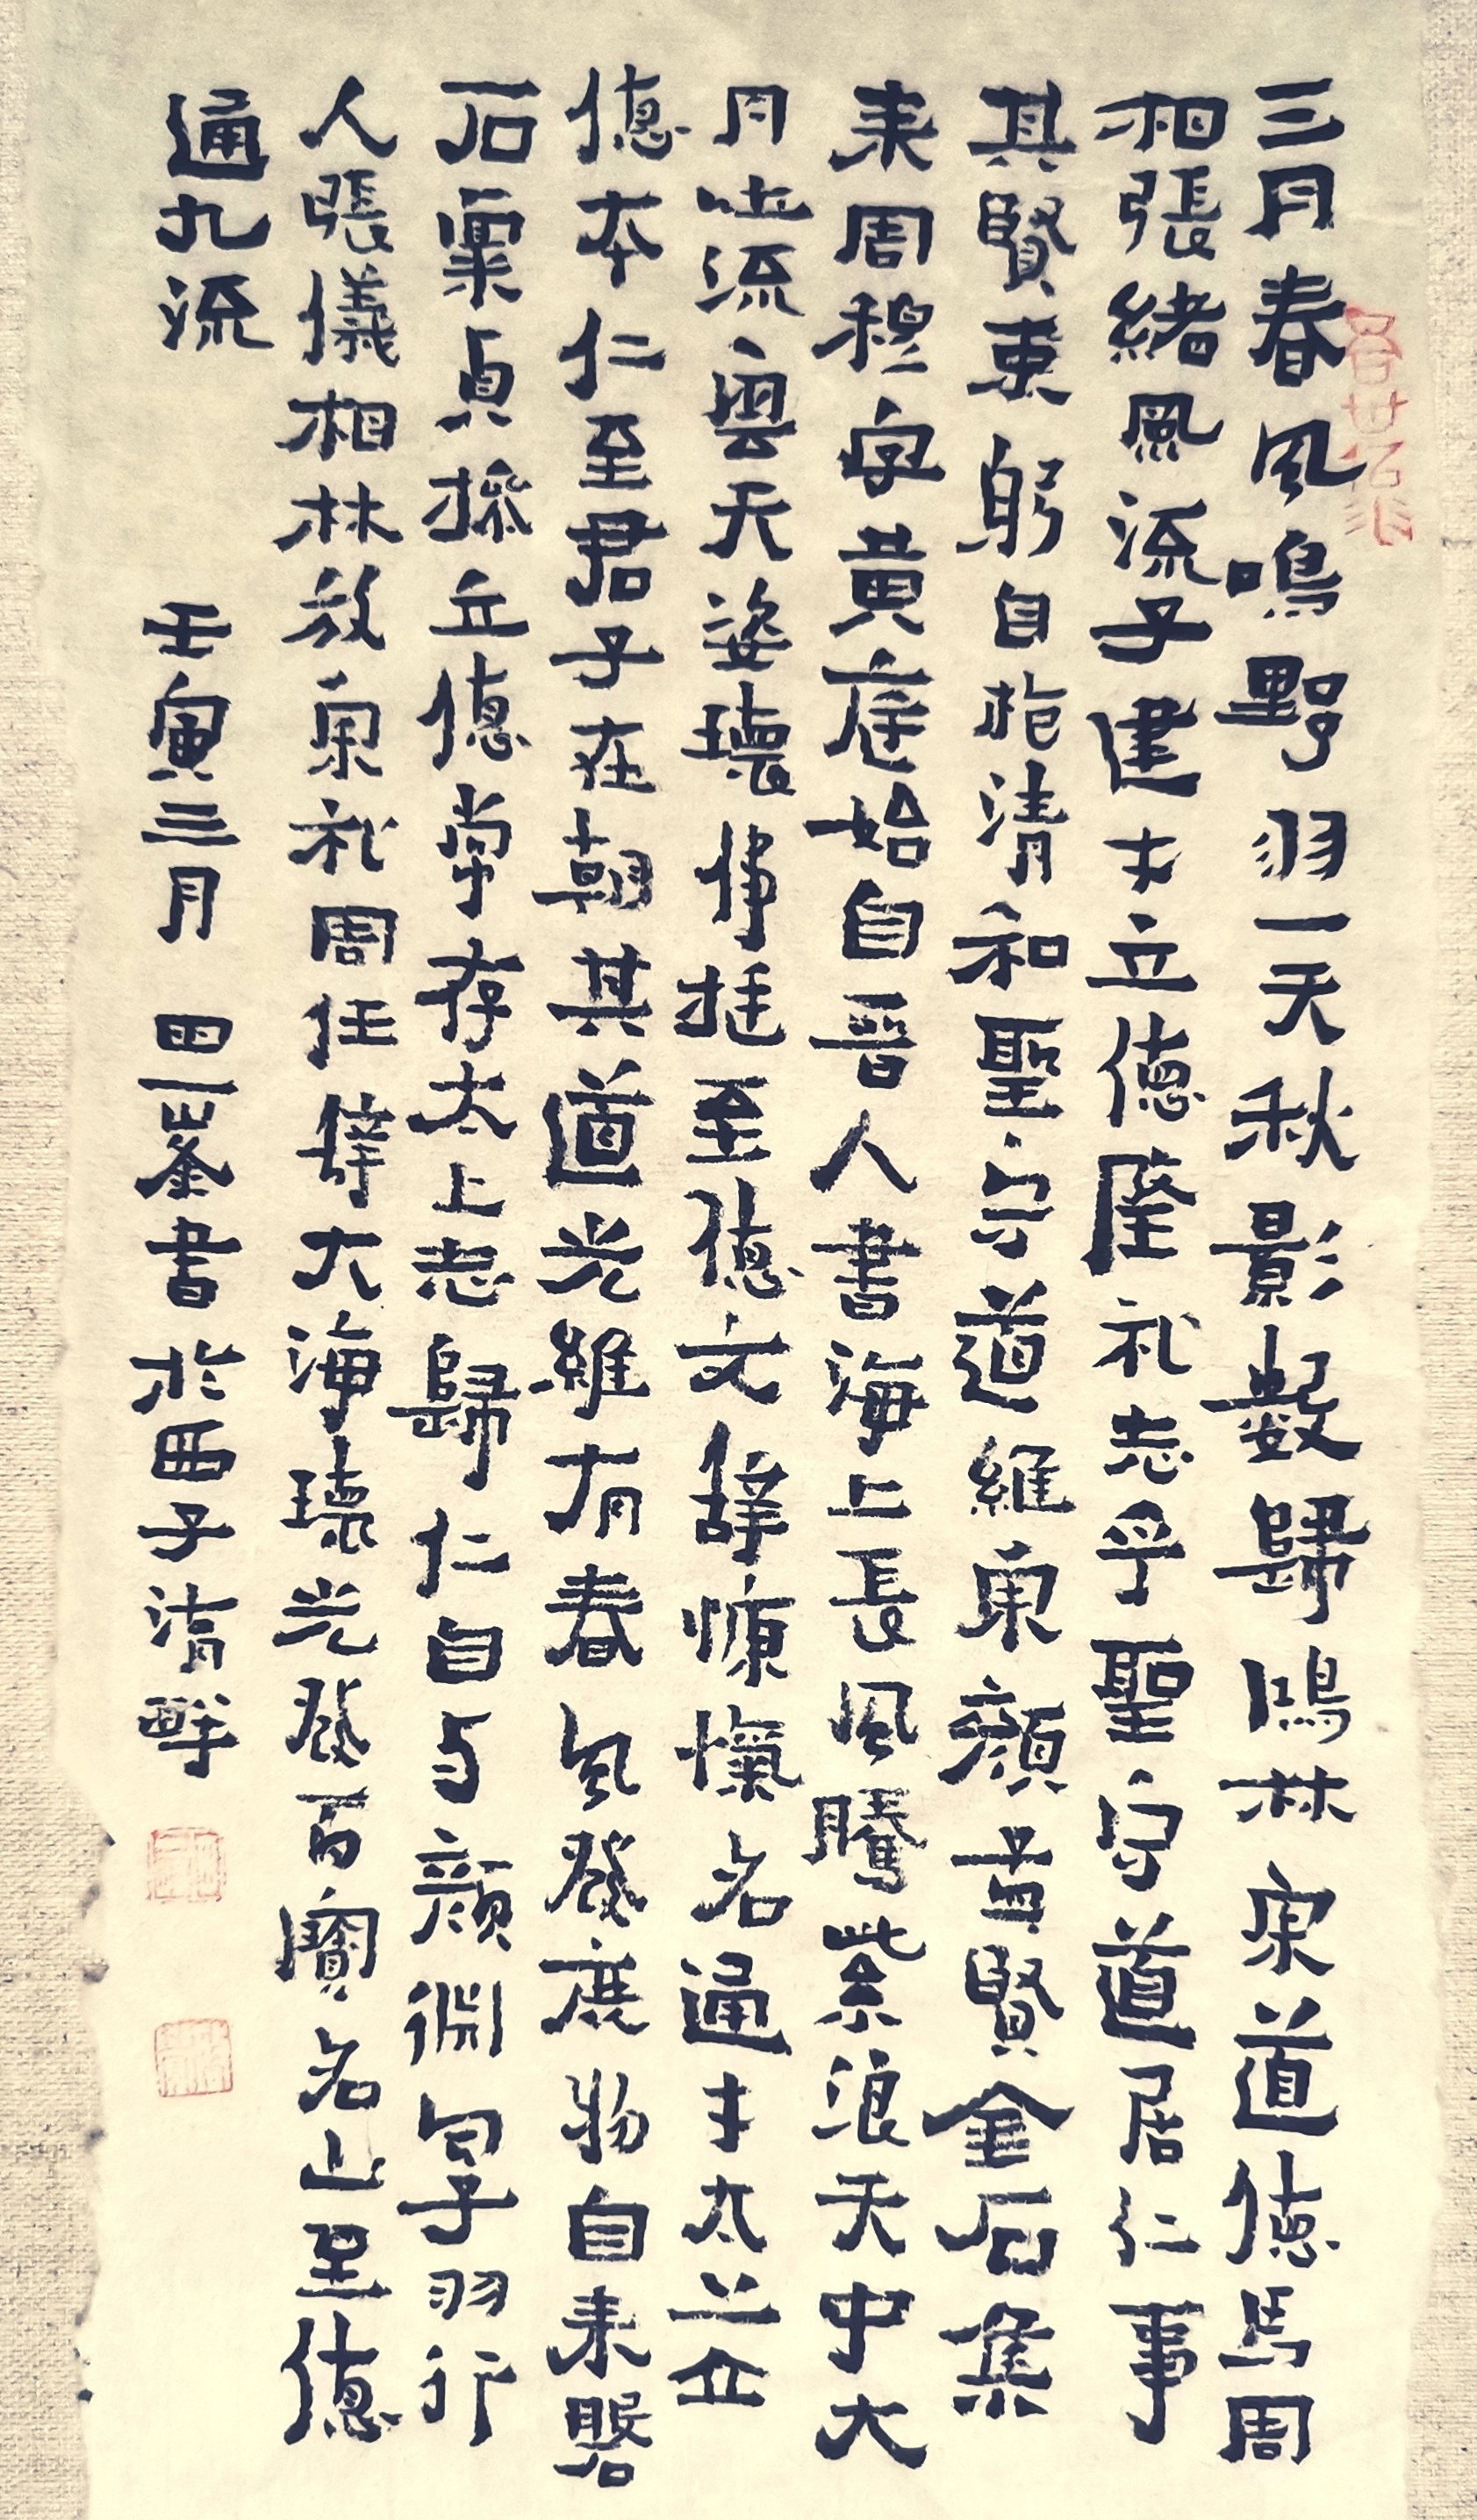 三月春风鳴野羽一天秋影數歸鴻林宗道德馬周
相張緒風流子建才立德隆礼志乎聖守道居仁事
其賢東躬自抱清和聖守道維東顏首賢金石集
来周穆字黄庭始自晉人書海上長風騰紫浪天中大
月吐流雲天姿瓌偉挺至德文辞慷慨名通才太上立
德本仁至君子在朝其道光維有春風發鹿物自来磐
石稟貞操立德常存太上志歸仁自与顏淵句子羽行
人張儀相林放問礼周任辞大海瓌光發百寶名山至德
通九流
壬寅三月 四一鋻書於西子清軒